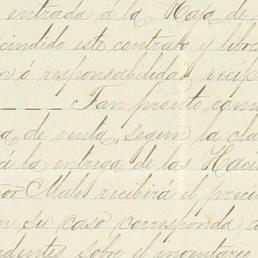 entrada á la Caja de
cindido este contrato y libre
n ó responsabilidad recip
Tan pronto como
a de venta, segun la cla
á la entrega de las Haci
or Malo recibirá el preci
n su caso corresponda a
dentes sobre el inventario